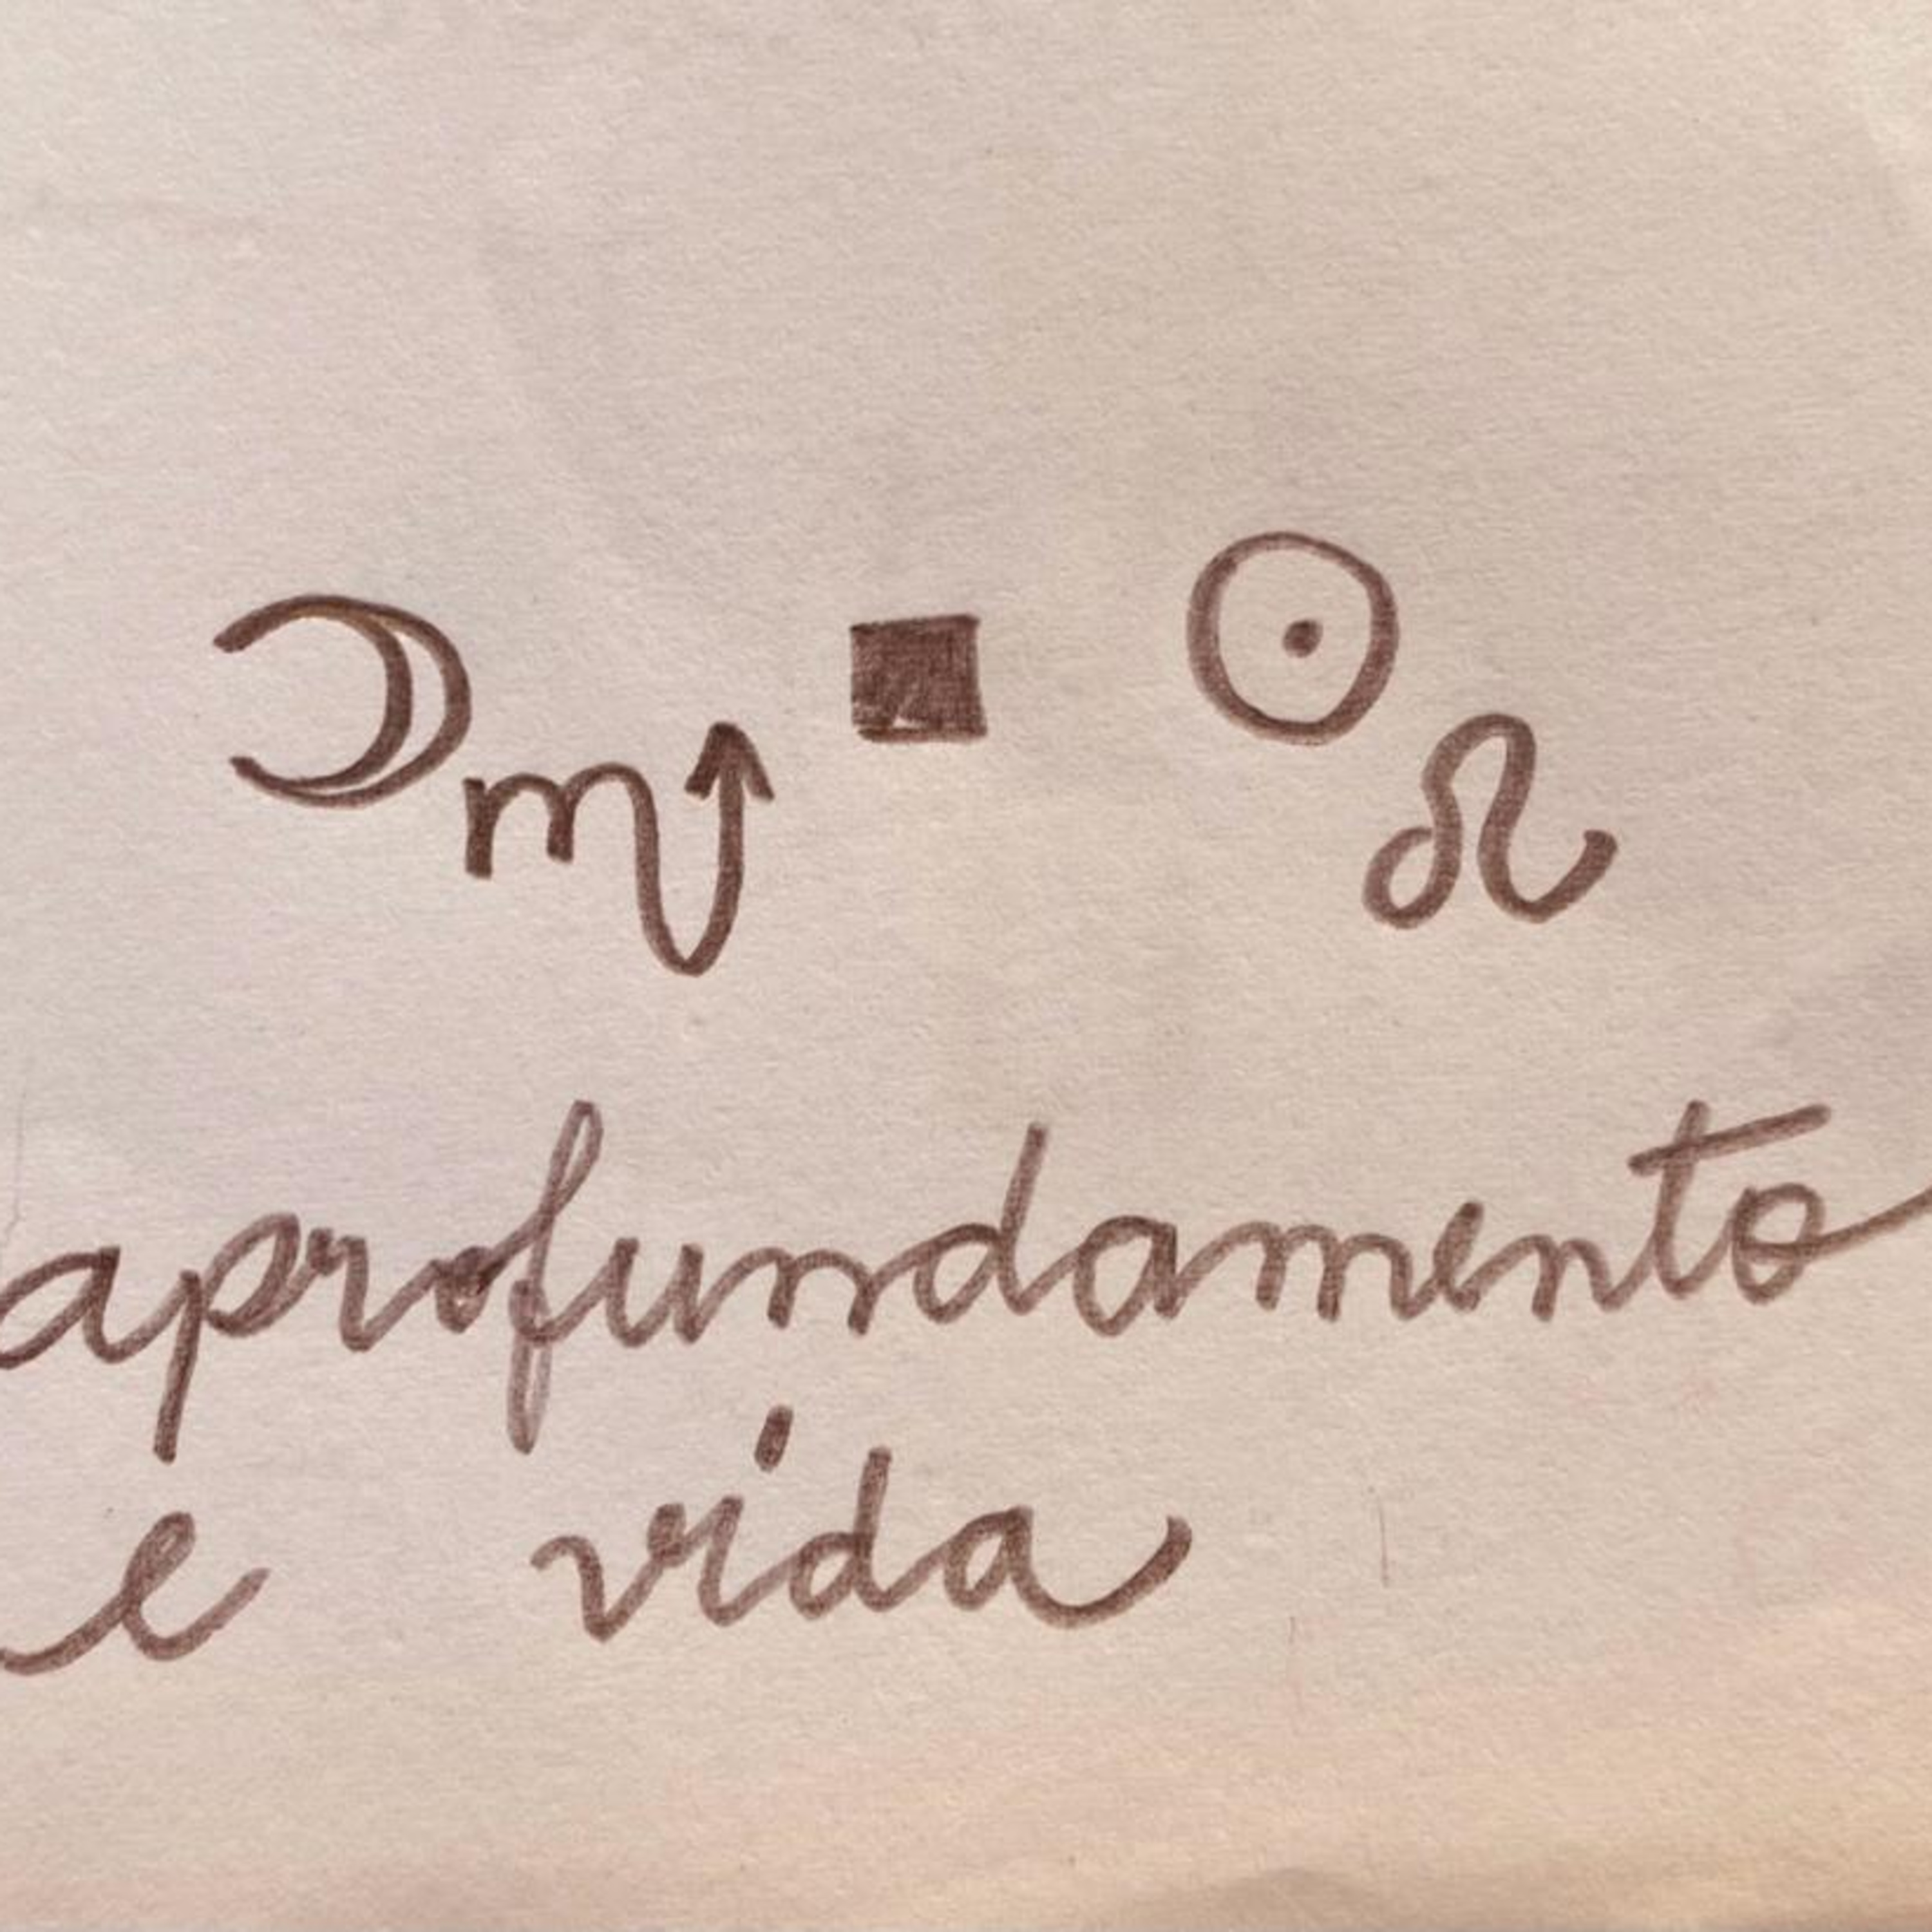 ☽♏ ■ ☉♌
aprofundamento
e vida